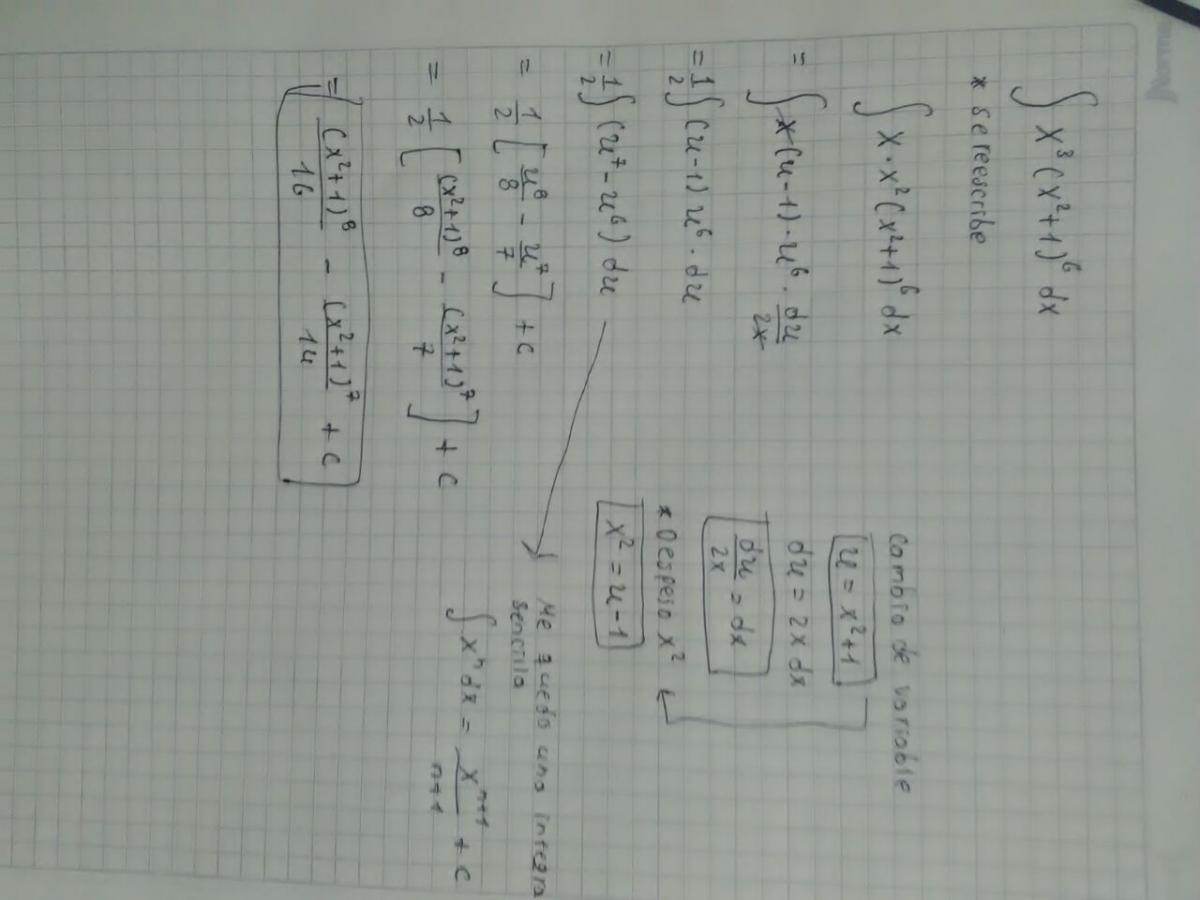 Norma
∫ x³(x²+1)⁶ dx
* se reescribe
∫ x·x²(x²+1)⁶ dx
= ∫ x(u-1)·u⁶·du/2x
= 1/2 ∫ (u-1)u⁶·du
= 1/2 ∫ (u⁷-u⁶) du
= 1/2 [u⁸/8 - u⁷/7] + c
= 1/2 [(x²+1)⁸/8 - (x²+1)⁷/7] + c
= (x²+1)⁸/16 - (x²+1)⁷/14 + c
cambio de variable
u = x²+1
du = 2x dx
du/2x = dx
* Despejo x²
x² = u-1
Me queda una integra
sencilla
∫ xⁿ dx = xⁿ⁺¹/n+1 + c